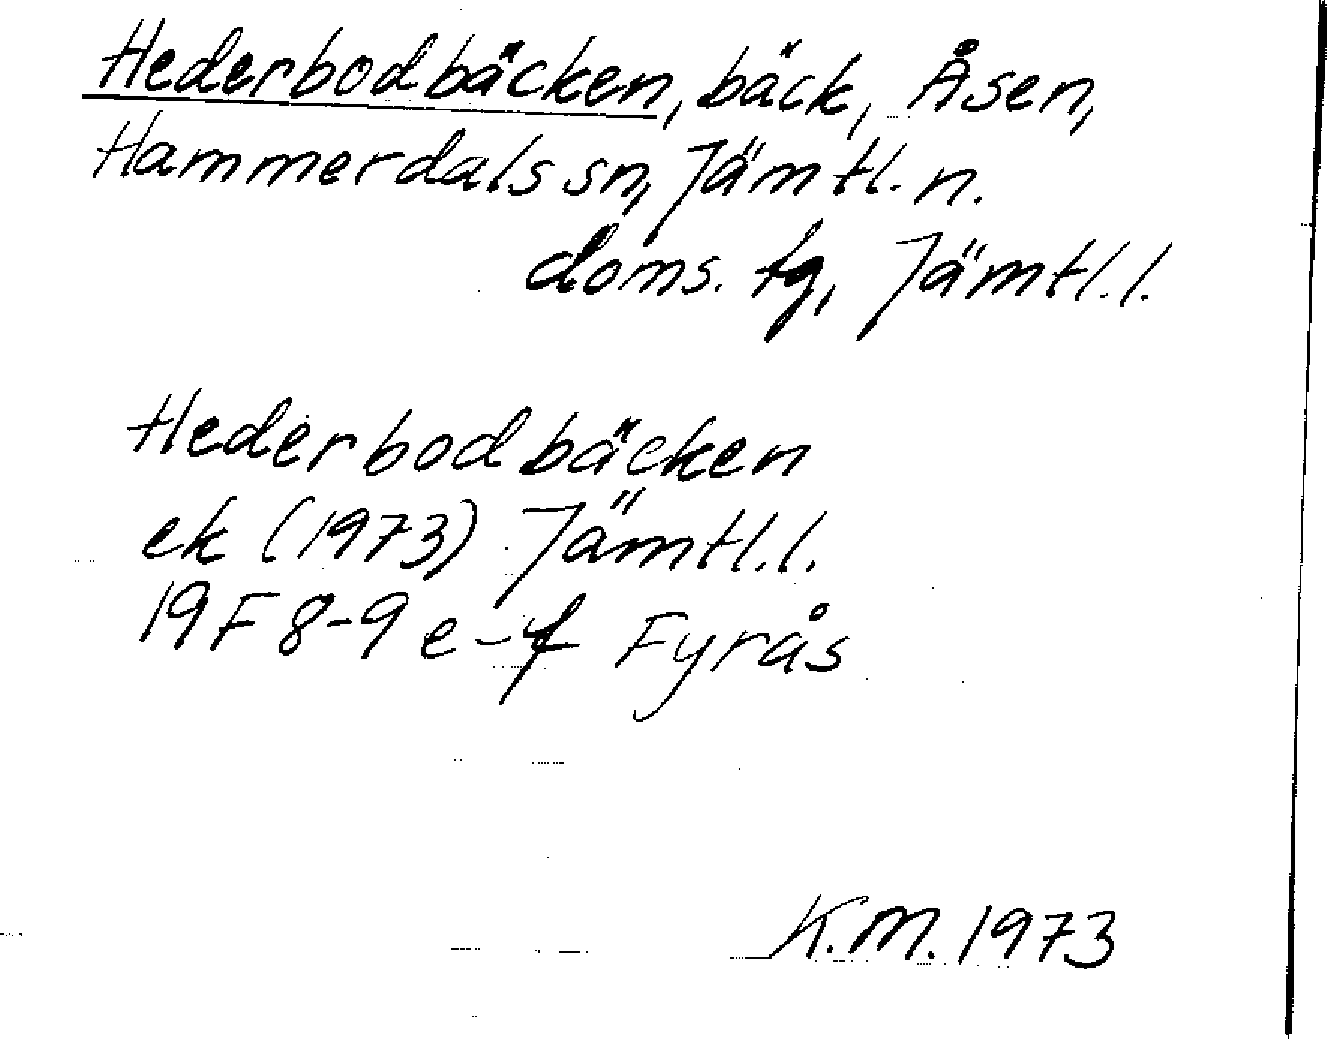 Hederbodbäcken, bäck, Åsen,
Hammerdals sn, Jämtl. n.
doms. tg, Jämtl. l.
Hederbodbäcken
ek (1973) Jämtl. l.
19F 8-9 e-f Fyrås
K.M. 1973